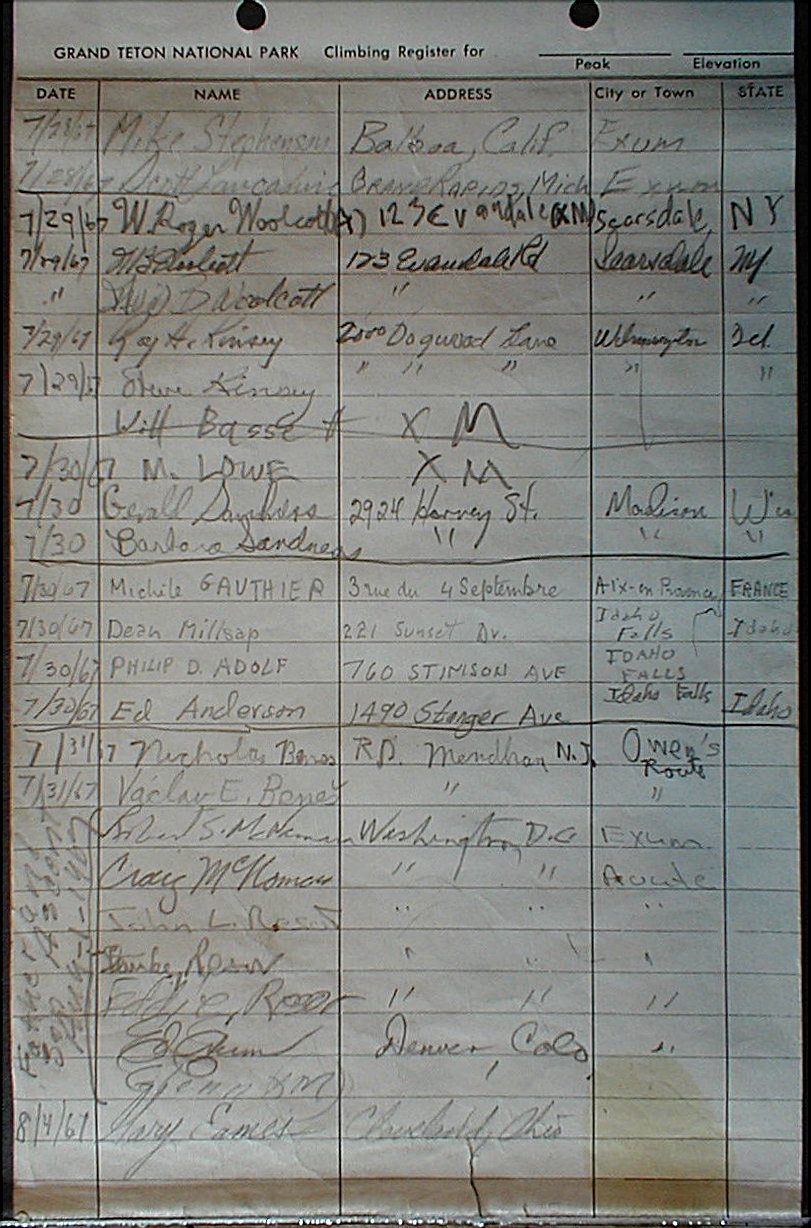 GRAND TETON NATIONAL PARK Climbing Register for
Peak Elevation
DATE NAME ADDRESS City or Town STATE
7/28/67 Mike Stephenson Balboa, Calif. Exum
7/28/67 Scott Rapids, Mich Exum
7/29/67 W. Roger Woolcott 123 Evandale Scarsdale, NY
7/29/67 123 Evandale Rd Scarsdale NY
" D Woolcott " " "
7/29/67 Roy H. Kinsey 2000 Dogwood Lane Wilmington Del.
7/29/67 Steve Kinsey " " " " "
Will Bassett X M
7/30/67 M. LOWE X M
7/30 2924 Harvey St. Madison Wis
7/30 Barbara " " "
7/30/67 Michile GAUTHIER 3 rue du 4 Septembre Aix-en Provence, FRANCE
7/30/67 Dean Millsap 221 Sunset Dr. Idaho Falls Idaho
7/30/67 PHILIP D. ADOLF 760 STIMSON AVE IDAHO FALLS
7/30/67 Ed Anderson 1490 Stanger Ave Idaho Falls Idaho
7/31/67 Nicholas Benes R.D. Mendham N.J. Owen's Route
7/31/67 Vaclav E. Benes " "
Robert S. McNamara Washington, D.C. Exum
Craig McNamara " " Route
John L. " " "
" " "
Eddie " " "
Denver Colo "
Glenn
8/4/67 Mary Eames Cleveland, Ohio